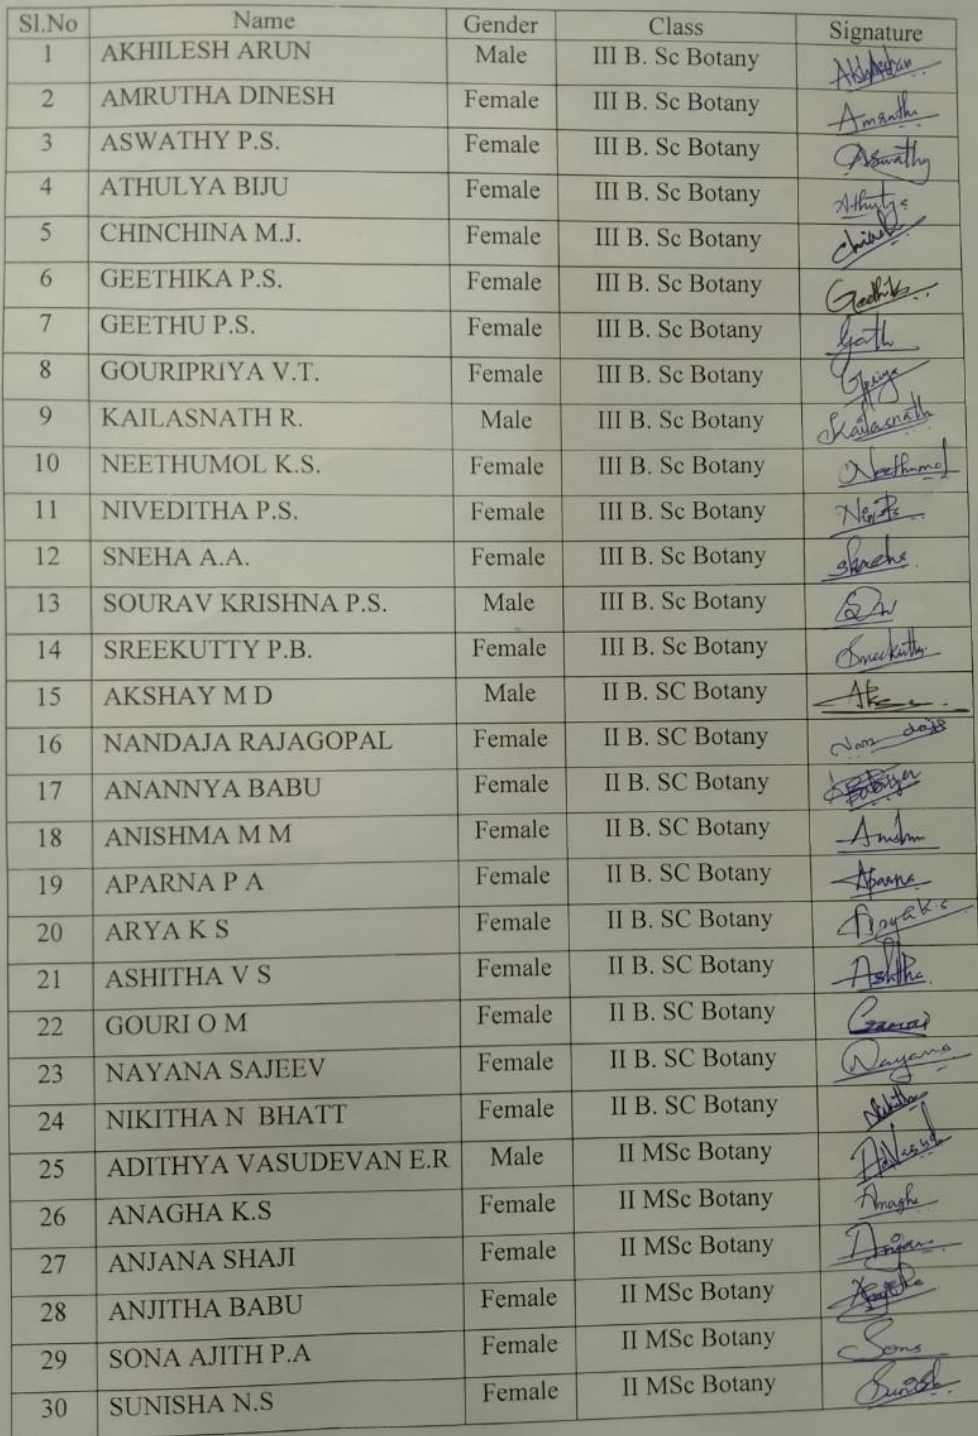 Sl.No Name Gender Class Signature
1 AKHILESH ARUN Male III B. Sc Botany
2 AMRUTHA DINESH Female III B. Sc Botany Amrutha
3 ASWATHY P.S. Female III B. Sc Botany Aswathy
4 ATHULYA BIJU Female III B. Sc Botany Athulya
5 CHINCHINA M.J. Female III B. Sc Botany
6 GEETHIKA P.S. Female III B. Sc Botany Geethika
7 GEETHU P.S. Female III B. Sc Botany
8 GOURIPRIYA V.T. Female III B. Sc Botany Gpriya
9 KAILASNATH R. Male III B. Sc Botany Kailasnath
10 NEETHUMOL K.S. Female III B. Sc Botany Neethumol
11 NIVEDITHA P.S. Female III B. Sc Botany
12 SNEHA A.A. Female III B. Sc Botany
13 SOURAV KRISHNA P.S. Male III B. Sc Botany
14 SREEKUTTY P.B. Female III B. Sc Botany Sreekutty
15 AKSHAY M D Male II B. SC Botany
16 NANDAJA RAJAGOPAL Female II B. SC Botany
17 ANANNYA BABU Female II B. SC Botany
18 ANISHMA M M Female II B. SC Botany
19 APARNA P A Female II B. SC Botany Aparna
20 ARYA K S Female II B. SC Botany Arya K.S
21 ASHITHA V S Female II B. SC Botany Ashitha
22 GOURI O M Female II B. SC Botany
23 NAYANA SAJEEV Female II B. SC Botany Nayana
24 NIKITHA N BHATT Female II B. SC Botany Nikitha
25 ADITHYA VASUDEVAN E.R Male II MSc Botany
26 ANAGHA K.S Female II MSc Botany Anagha
27 ANJANA SHAJI Female II MSc Botany Anjana
28 ANJITHA BABU Female II MSc Botany
29 SONA AJITH P.A Female II MSc Botany Sona
30 SUNISHA N.S Female II MSc Botany